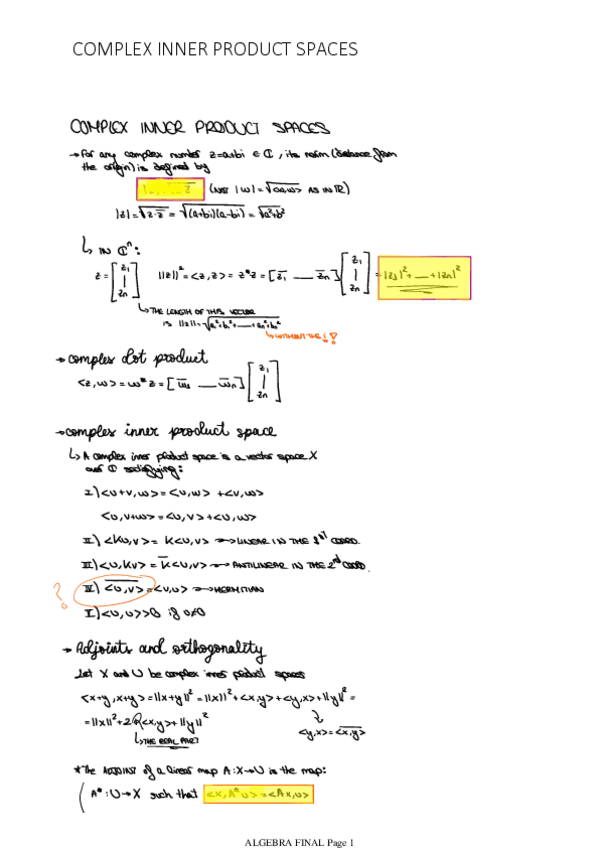 COMPLEX INNER PRODUCT SPACES
COMPLEX INNER PRODUCT SPACES
→ for any complex number z=a+bi ∈ ℂ, its norm (distance from
the origin) is defined by
(NOT |w|=√ AS IN ℝ)
|z|=√z·z̅ = √(a+bi)(a-bi) = √a²+b²
↳ IN ℂⁿ:
z = [z₁ | zn] ||z||² = <z,z> = z*z = [z̅₁ __ z̅n] [z₁ | zn] = |z₁|²+ __ +|zn|²
↳ THE LENGTH OF THIS VECTOR
IS ||z||=
↳ WITHOUT THE i !
→ complex dot product
<z,w> = w*z = [w̅₁ __ w̅n] [z₁ | zn]
→ complex inner product space
↳ A complex inner product space is a vector space X
over ℂ satisfying:
I) <u+v,w> = <u,w> + <v,w>
<u,v+w> = <u,v> + <u,w>
II) <Ku,v> = K<u,v> → LINEAR IN THE 1st COORD.
III) <u,Kv> = K̅<u,v> → ANTILINEAR IN THE 2nd COORD.
? IV) <u,v>̅ = <v,u> → HERMITIAN
V) <u,u> > 0 if u≠0
→ Adjoints and orthogonality
Let X and U be complex inner product spaces
<x+y,x+y> = ||x+y||² = ||x||² + <x,y> + <y,x> + ||y||² =
= ||x||² + 2R<x,y> + ||y||²
↳ THE REAL PART
<y,x> = <x,y>̅
* The ADJOINT of a linear map A: X→U is the map:
A* : U→X such that <x,A*u> = <Ax,u>
ALGEBRA FINAL Page 1